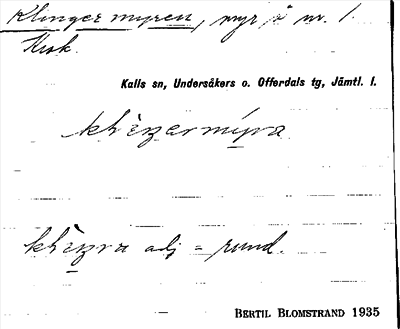 Klingermyren, myr, å nr. 1.
Krok.
Kalls sn, Undersåkers o. Offerdals tg, Jämtl. l.
khèŋermýra
khèŋra adj = rund.
BERTIL BLOMSTRAND 1935